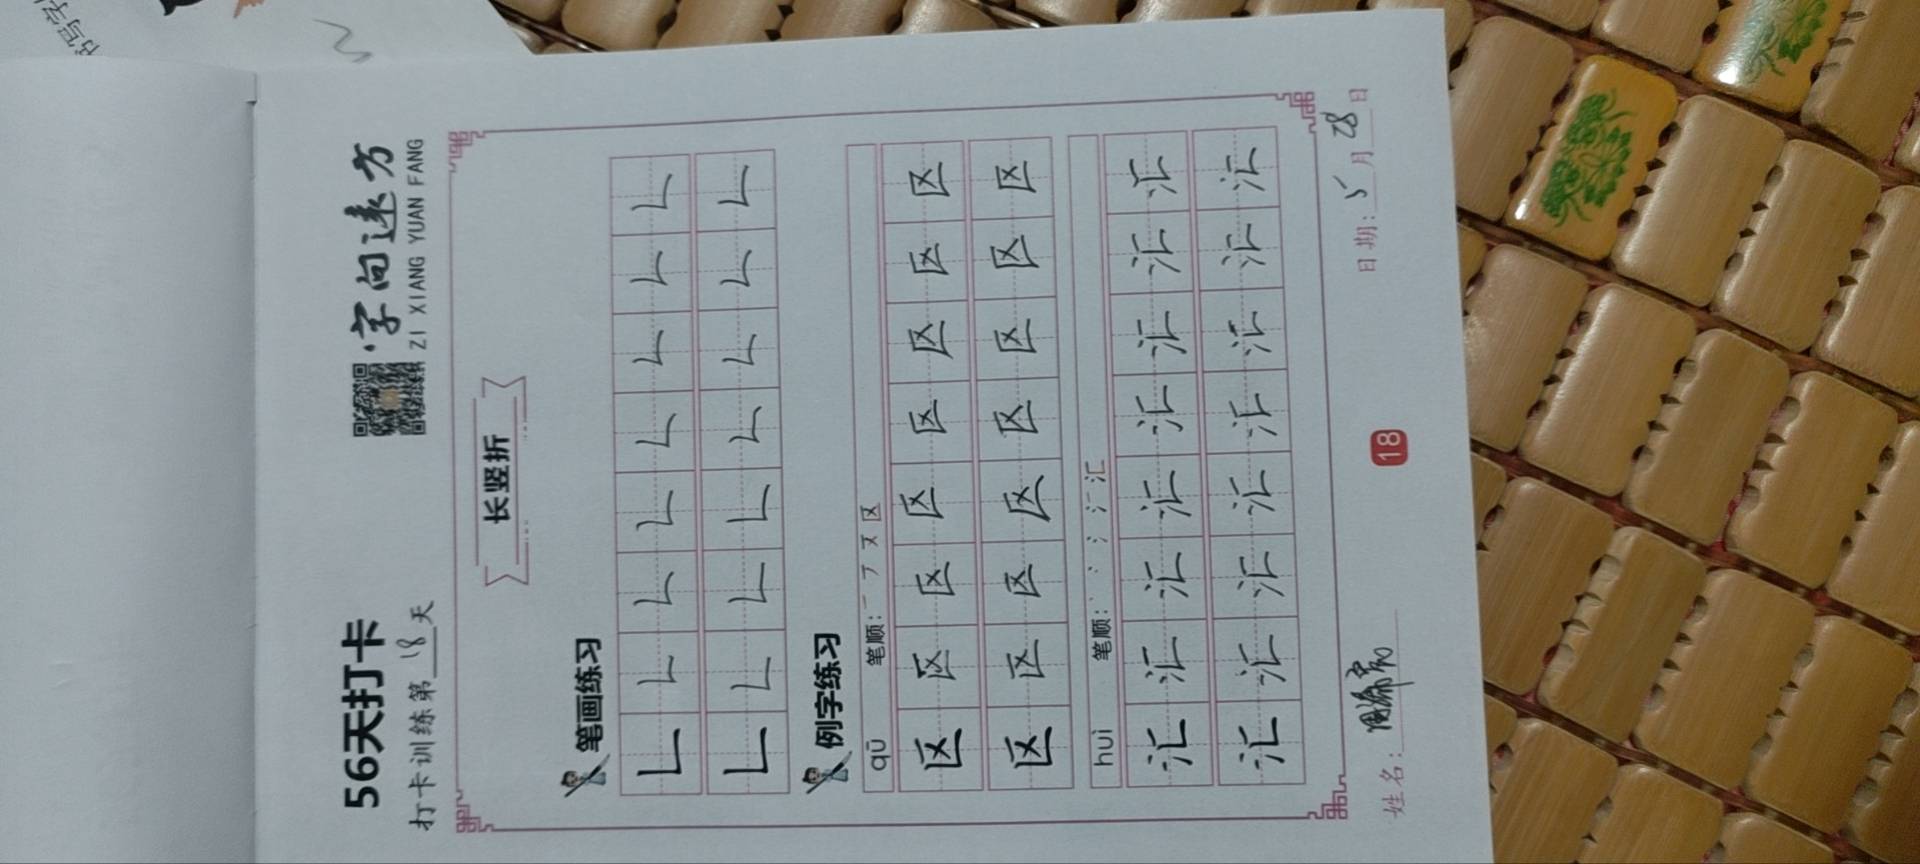 56天打卡
字向速方
打卡训练第18天
ZI XIANG YUAN FANG
长竖折
笔画练习
𠃊 𠃊 𠃊 𠃊 𠃊 𠃊 𠃊 𠃊
𠃊 𠃊 𠃊 𠃊 𠃊 𠃊 𠃊 𠃊
例字练习
qū 笔顺: 一 ㄱ 又 区
区 区 区 区 区 区 区 区
区 区 区 区 区 区 区 区
huì 笔顺: 丶 丶 氵 汇 汇
汇 汇 汇 汇 汇 汇 汇 汇
汇 汇 汇 汇 汇 汇 汇 汇
姓名:
18
日期: 5月28日